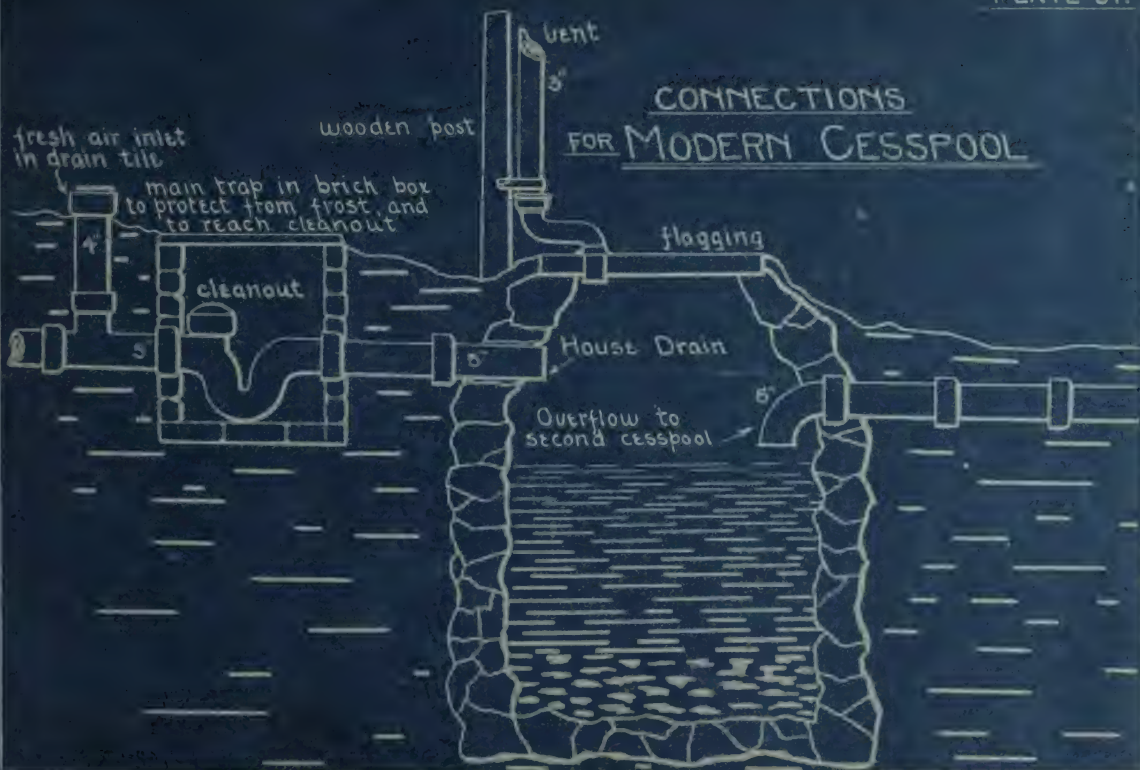 vent
3"
CONNECTIONS
FOR MODERN CESSPOOL
wooden post
fresh air inlet
in drain tile
main trap in brick box
to protect from frost and
to reach cleanout
4"
flagging
cleanout
5"
5"
House Drain
6"
Overflow to
second cesspool